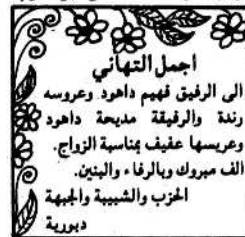 اجمل التهاني
الى الرفيق فهيم داهود وعروسه
رندة والرفيقة مديحة داهود
وعريسها عفيف بمناسبة الزواج.
الف مبروك وبالرفاء والبنين.
الحزب والشبيبة والجبهة
دبورية